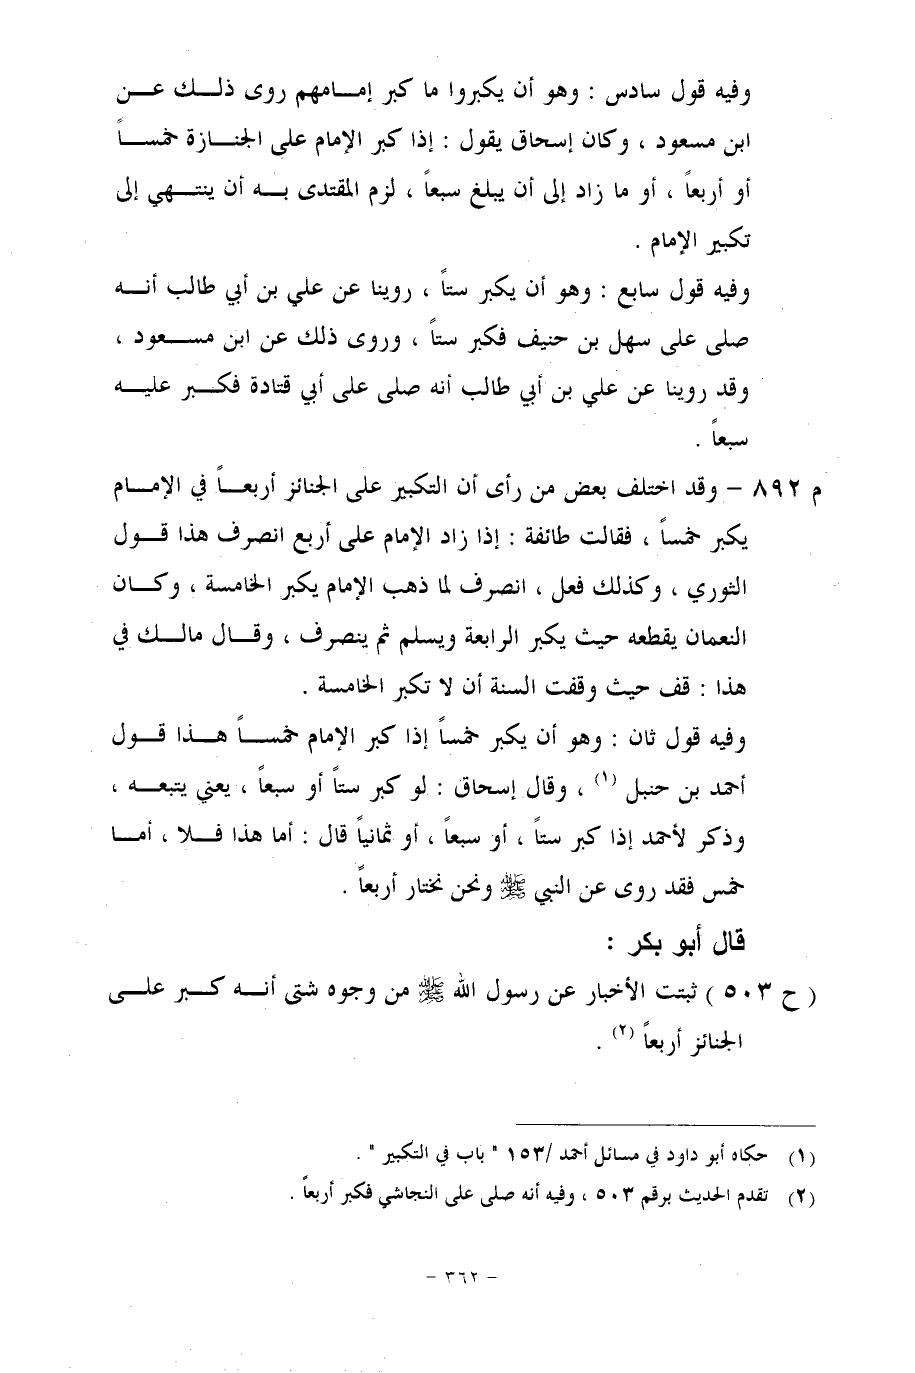 وفيه قول سادس : وهو أن يكبروا ما كبر إمـامهم روى ذلـك عـن
ابن مسعود ، وكان إسحاق يقول : إذا كبر الإمام على الجنـازة خمسـاً
أو أربعاً ، أو ما زاد إلى أن يبلغ سبعاً ، لزم المقتدى بـه أن ينتـهي إلى
تكبير الإمام .
وفيه قول سابع : وهو أن يكبر ستاً ، روينا عن علي بن أبي طالب أنـه
صلى على سهل بن حنيف فكبر ستاً ، وروى ذلك عن ابن مسـعود ،
وقد روينا عن علي بن أبي طالب أنه صلى على أبي قتادة فكـبر عليـه
سبعاً .
م ٨٩٢ – وقد اختلف بعض من رأى أن التكبير على الجنائز أربعـاً في الإمـام
يكبر خمساً ، فقالت طائفة : إذا زاد الإمام على أربع انصرف هذا قـول
الثوري ، وكذلك فعل ، انصرف لما ذهب الإمام يكبر الخامسة ، وكـان
النعمان يقطعه حيث يكبر الرابعة ويسلم ثم ينصرف ، وقـال مالـك في
هذا : قف حيث وقفت السنة أن لا تكبر الخامسة .
وفيه قول ثان : وهو أن يكبر خمساً إذا كبر الإمام خمسـاً هـذا قـول
أحمد بن حنبل (١) ، وقال إسحاق : لو كبر ستاً أو سبعاً ، يعني يتبعـه ،
وذكر لأحمد إذا كبر ستاً ، أو سبعاً ، أو ثمانياً قال : أما هذا فـلا ، أمـا
خمس فقد روى عن النبي ﷺ ونحن نختار أربعاً .
قال أبو بكر :
( ح ٥٠٣ ) ثبتت الأخبار عن رسول الله ﷺ من وجوه شتى أنـه كـبر علـى
الجنائز أربعاً (٢) .
(١) حكاه أبو داود في مسائل أحمد /١٥٣ " باب في التكبير " .
(٢) تقدم الحديث برقم ٥٠٣ ، وفيه أنه صلى على النجاشي فكبر أربعاً .
- ٣٦٢ -